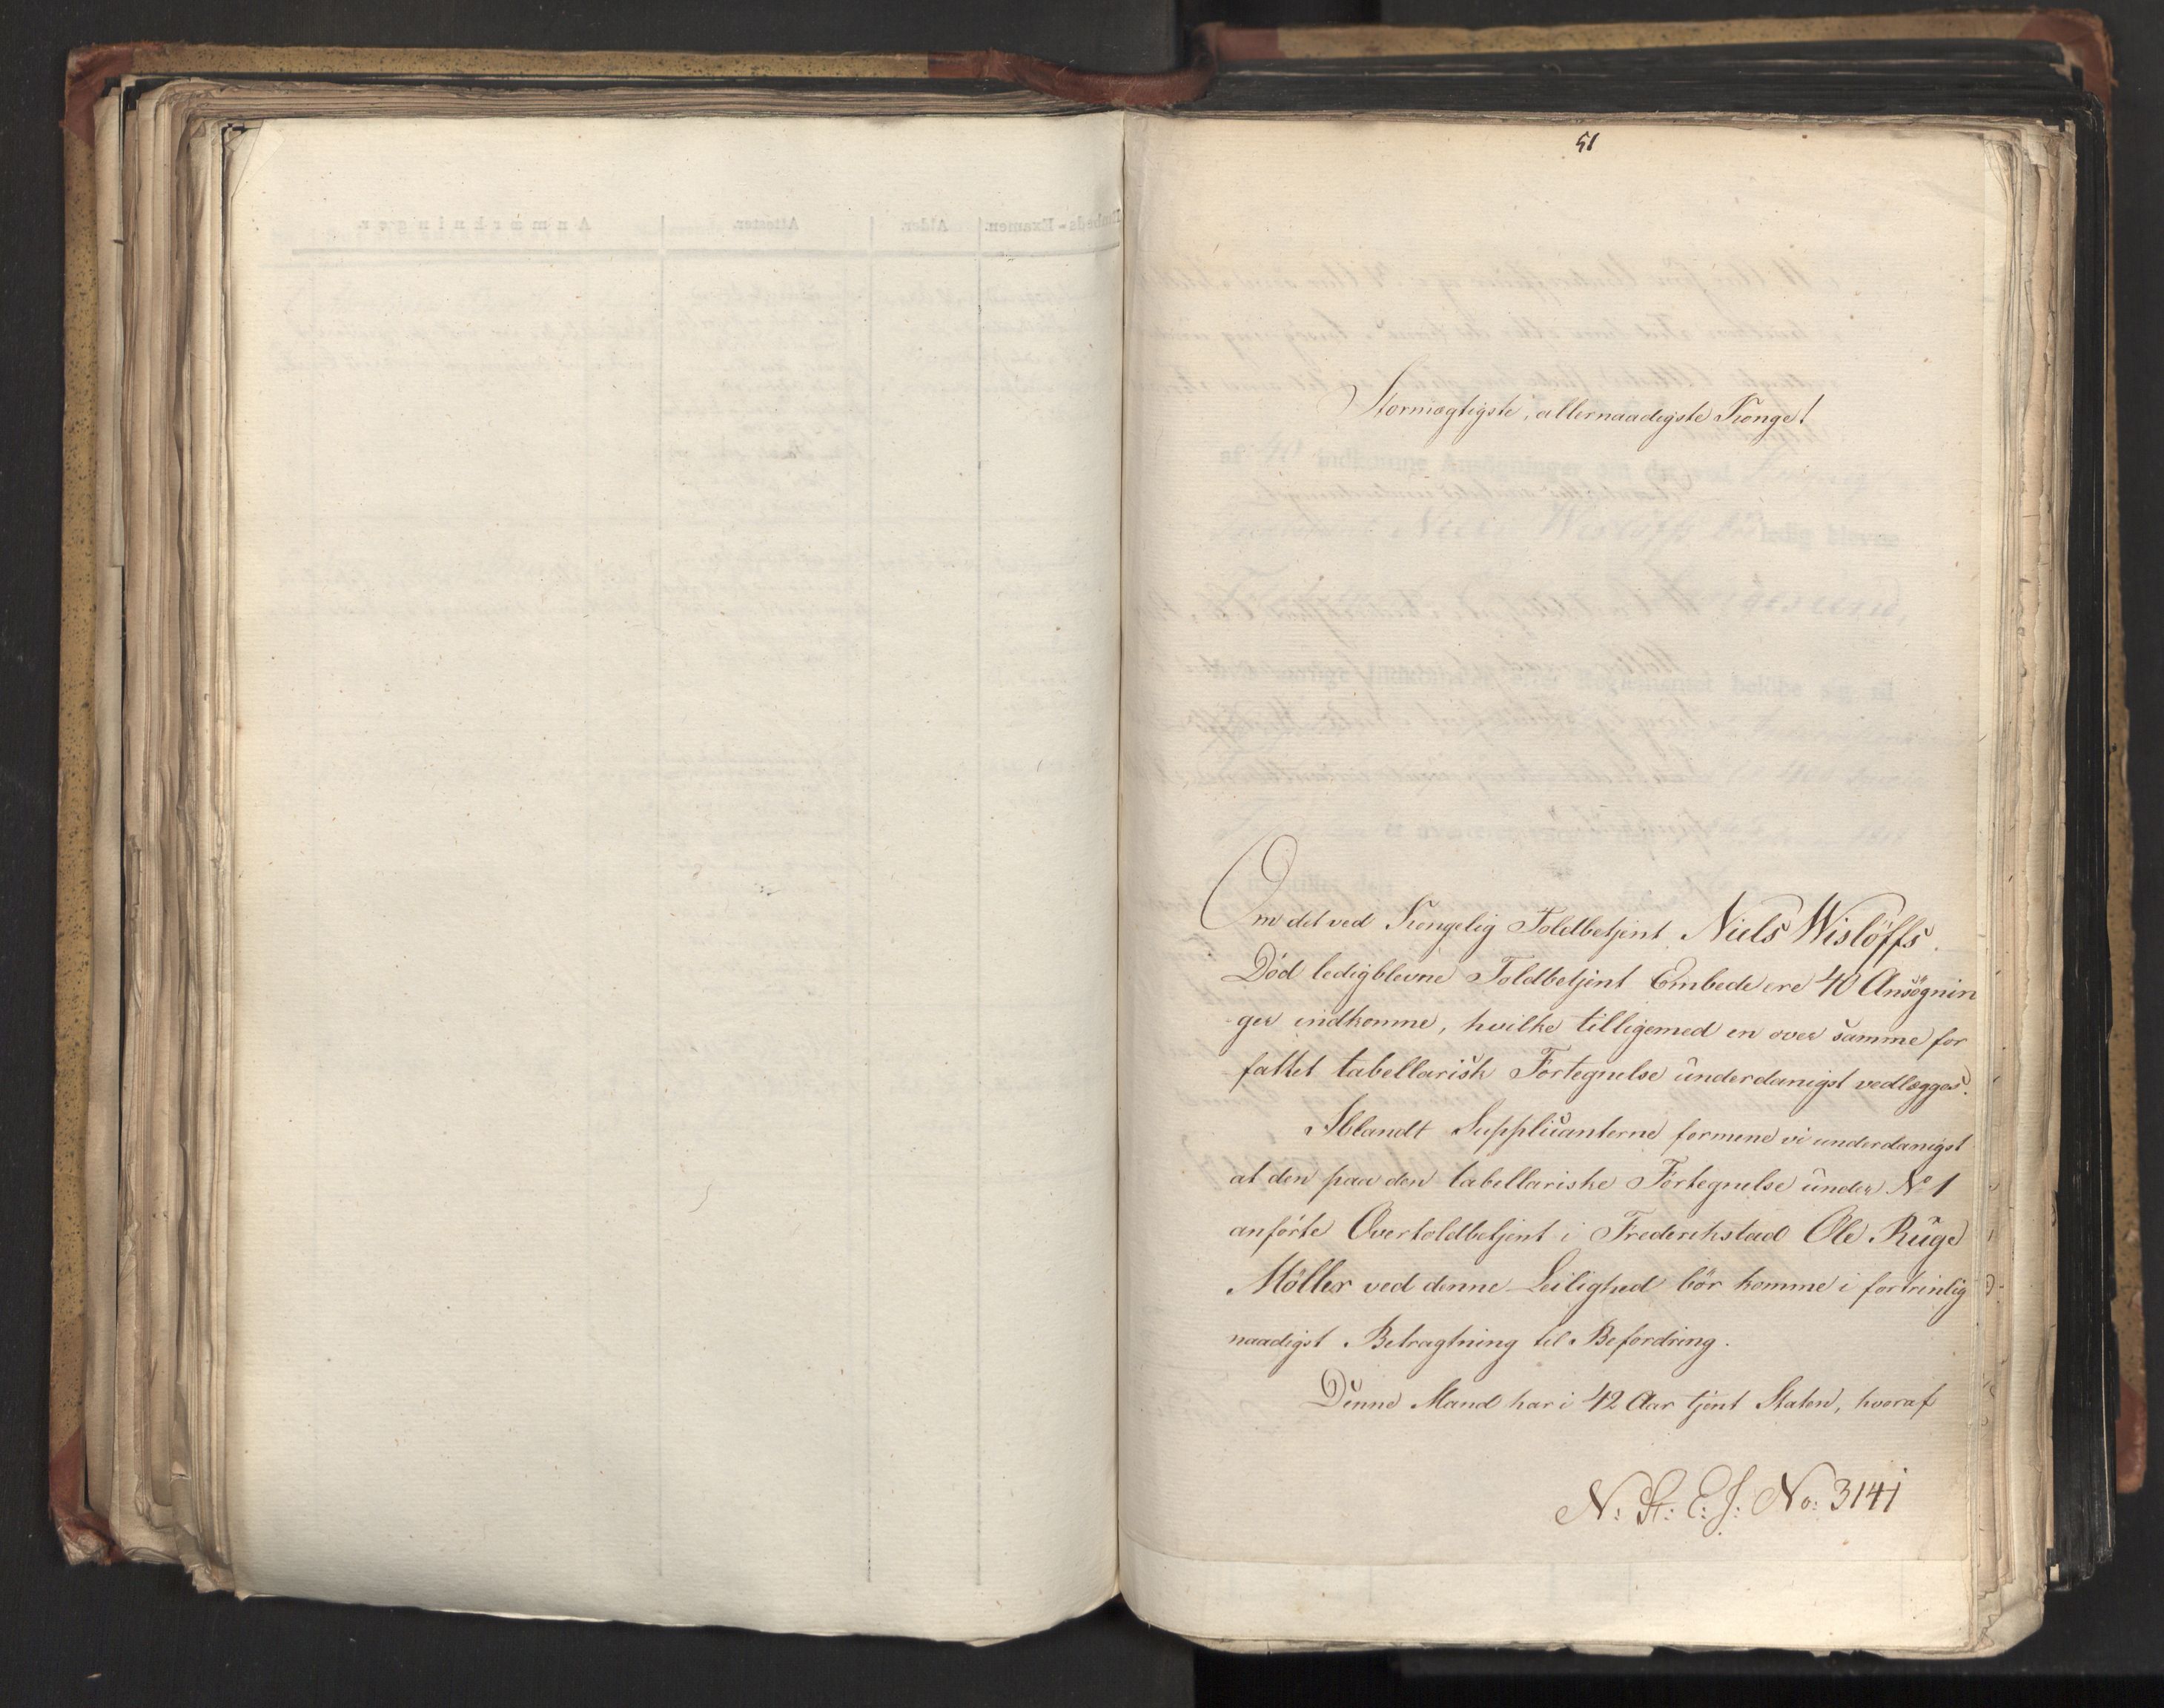 51
Stormægtigste, allernaadigste Konge!
Om det ved Kongelig Toldbetjent Niels Wislöffs
Död ledigblevne Toldbetjent Embede ere 40 Ansøgnin
ger indkomne, hvilke tilligemed en over samme for
fattet tabellarisk Fortegnelse underdanigst vedlægges.
Iblandt Supplicanterne formene vi underdanigst
at den paa den tabellariske Fortegnelse under No 1
anförte Overtoldbetjent i Frederikstad Ole Ruge
Möller ved denne Leilighed bör komme i fortrinlig
naadigst Betragtning til Befordring.
Denne Mand har i 42 Aar tjent Staten, hvoraf
N: St: E: J: No: 3141